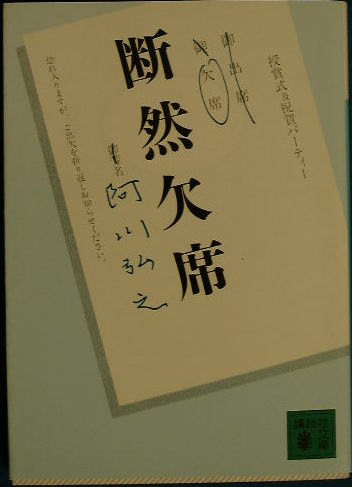 授賞式及祝賀パーティー
御出席
御欠席
断然欠席
御芳名
阿川弘之
恐れ入りますが、ご出欠を折り返しお知らせください。
講談社文庫